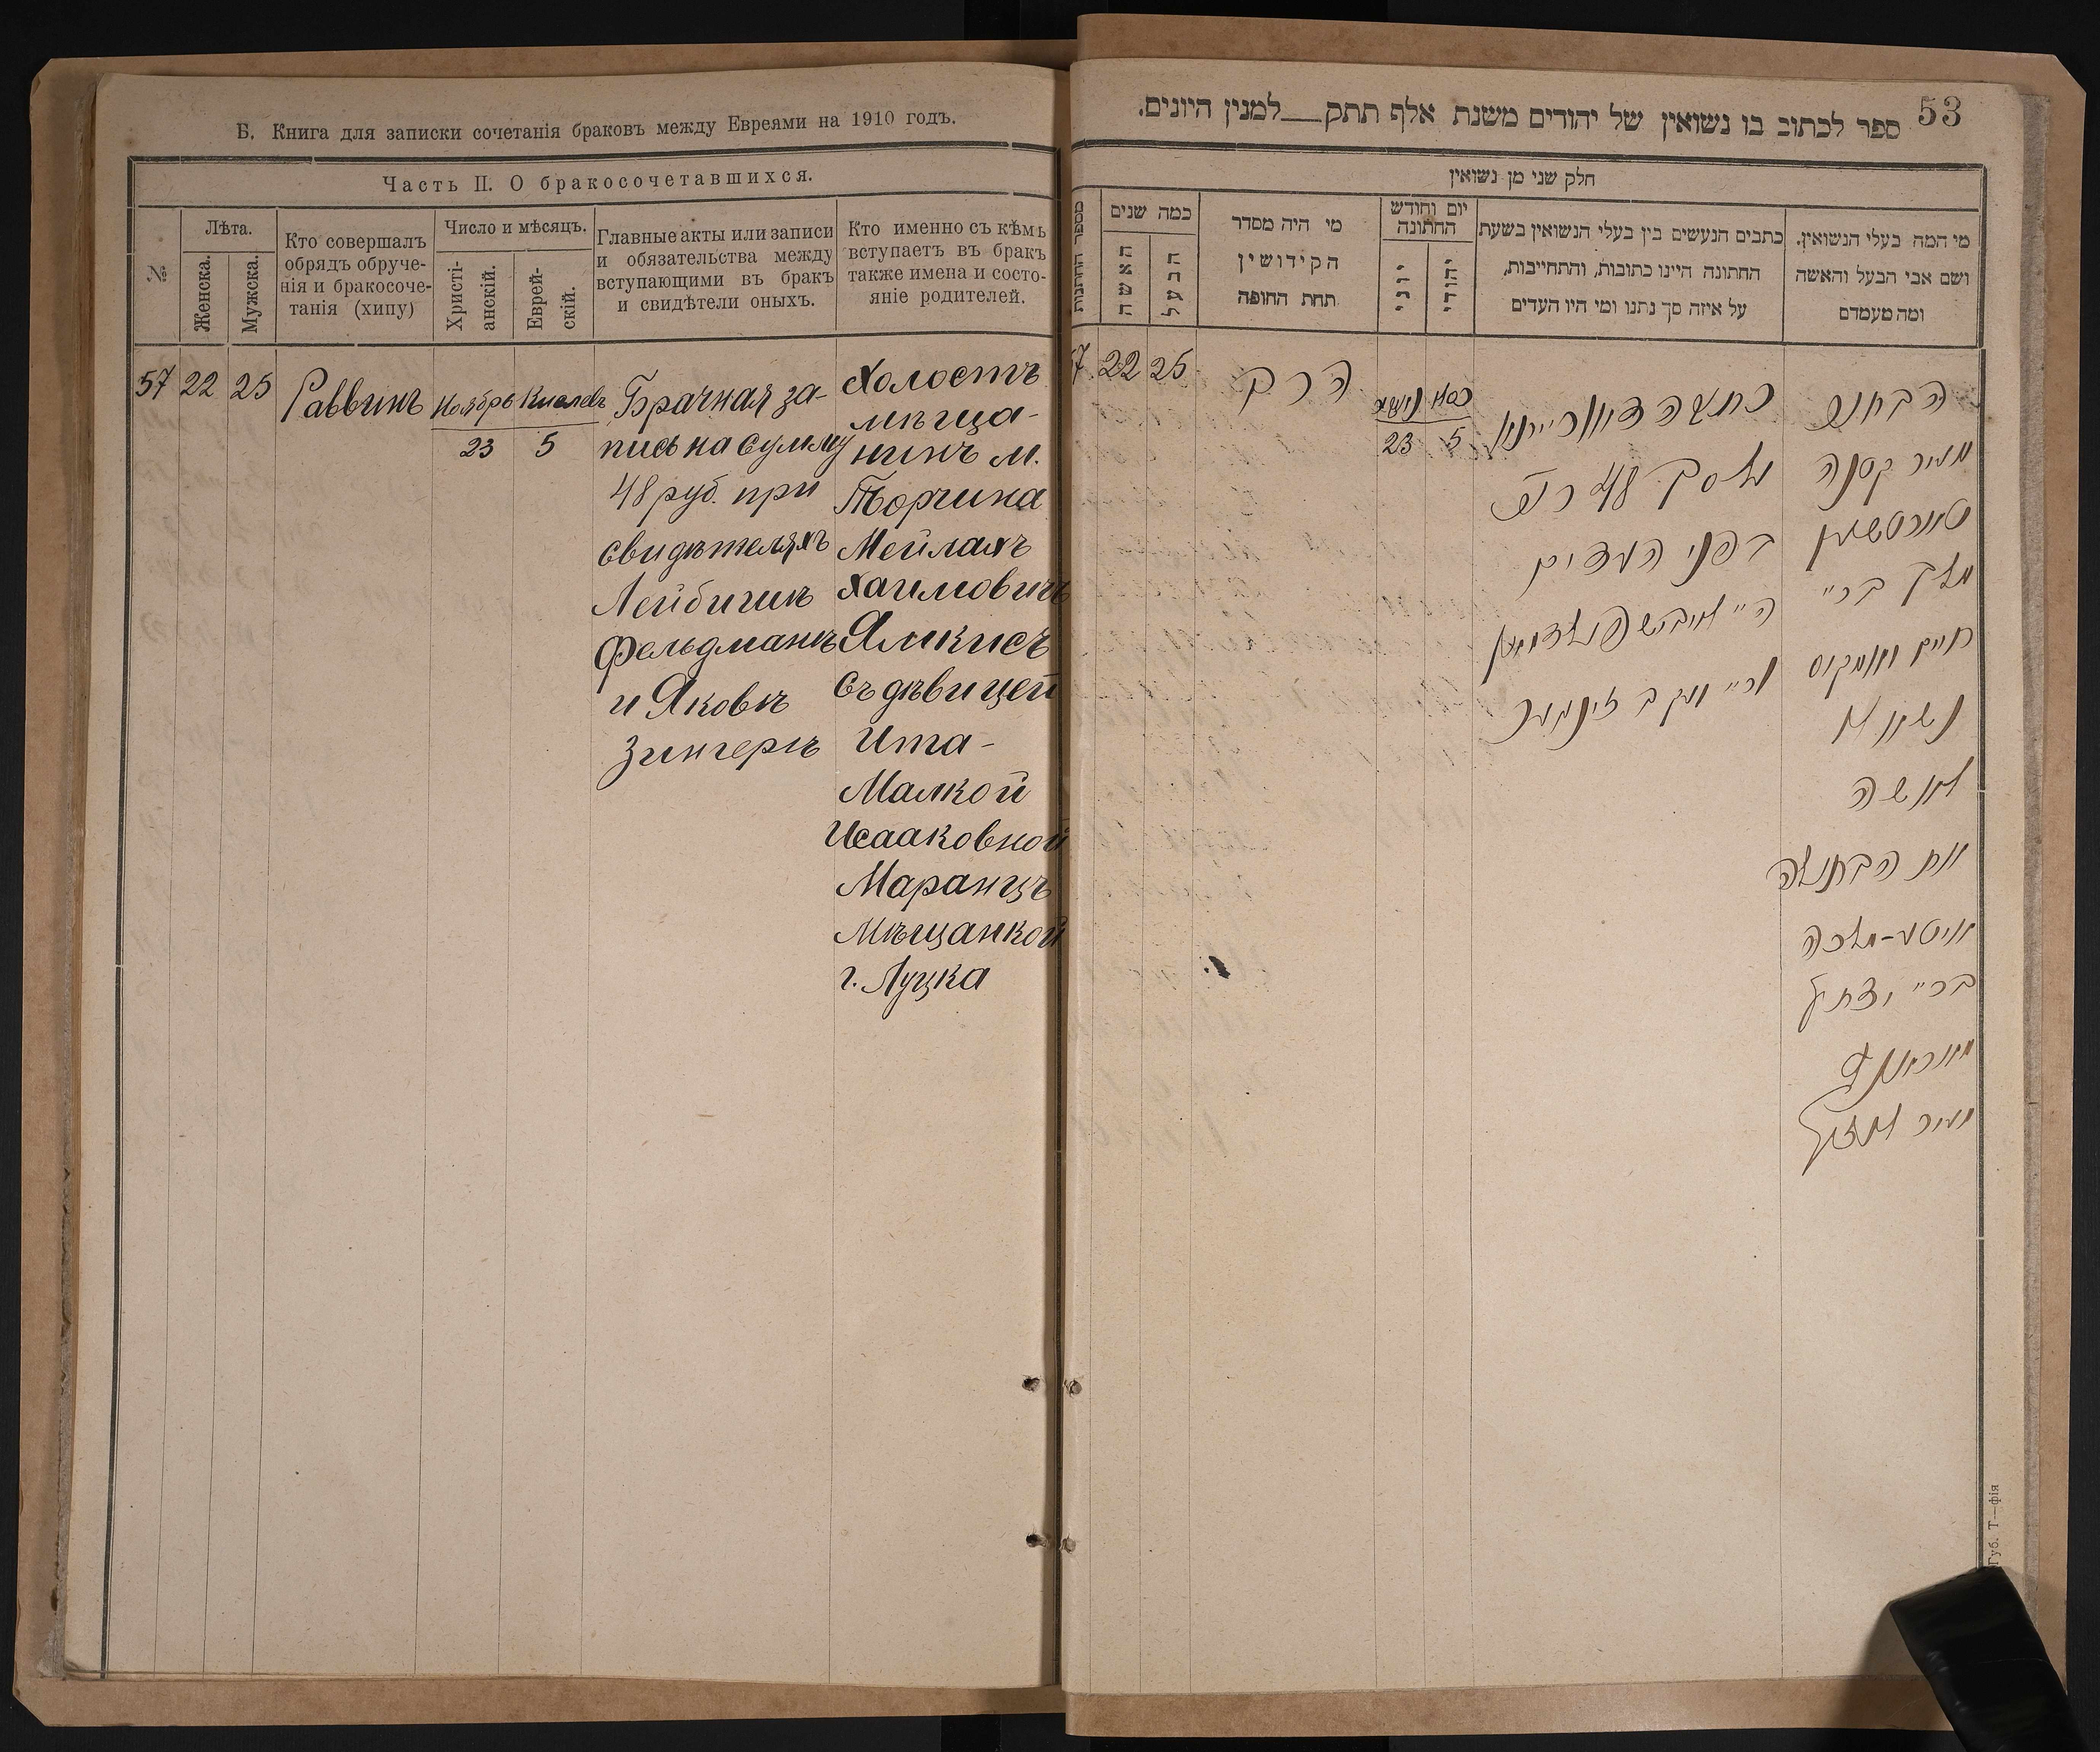 Б. Книга для записки сочетанія браковъ между Евреями на 1910 годъ.
Часть II. О бракосочетавшихся.
№
Лѣта.
Женска.
Мужска.
Кто совершалъ
обрядъ обруче-
нія и бракосоче-
танія (хипу)
Число и мѣсяцъ.
Христі-
анскій.
Еврей-
скій.
Главные акты или записи
и обязательства между
вступающими въ бракъ
и свидѣтели оныхъ.
Кто именно съ кѣмъ
вступаетъ въ бракъ
также имена и состо-
яніе родителей.
57
22
25
Раввинъ
Ноябрь
23
Кислевъ
5
Брачная за-
пись на сумму
48 руб. при
свидѣтеляхъ
Лейбишъ
Фельдманъ
и Яковъ
Зингеръ
Холостъ
мѣща-
нинъ м.
Торчина
Мейлахъ
Хаимовичъ
Ямкисъ
съ дѣвицей
Ита-
Малкой
Исааковной
Маранцъ
Мѣщанкой
г. Луцка
53
ספר לכתוב בו נשואין של יהודים משנת אלף תתק___למנין היונים.
חלק שני מן נשואין
מספר החתונות
כמה שנים
האשה
הבעל
מי היה מסדר
הקידושין
תחת החופה
יום וחודש
החתונה
יוני
יהודי
כתבים הנעשים בין בעלי הנשואין בשעת
החתונה היינו כתובות, והתחייבות,
על איזה סך נתנו ומי היו העדים
מי המה בעלי הנשואין,
ושם אבי הבעל והאשה
ומה מעמדם
57
22
25
הרב
23
5
מסך 48 רו"כ
בפני העדים
ה"ה לייביש פעלדמאן
ור"י יעקב זינגער
הבחור
מעיר קטנה
טורטשין
מלך בר"
חיים יאמקיס
נשוי א
לאשה
את הבתולה
איטא-מלכה
בר" יצחק
מאראנץ
מעיר לוצק